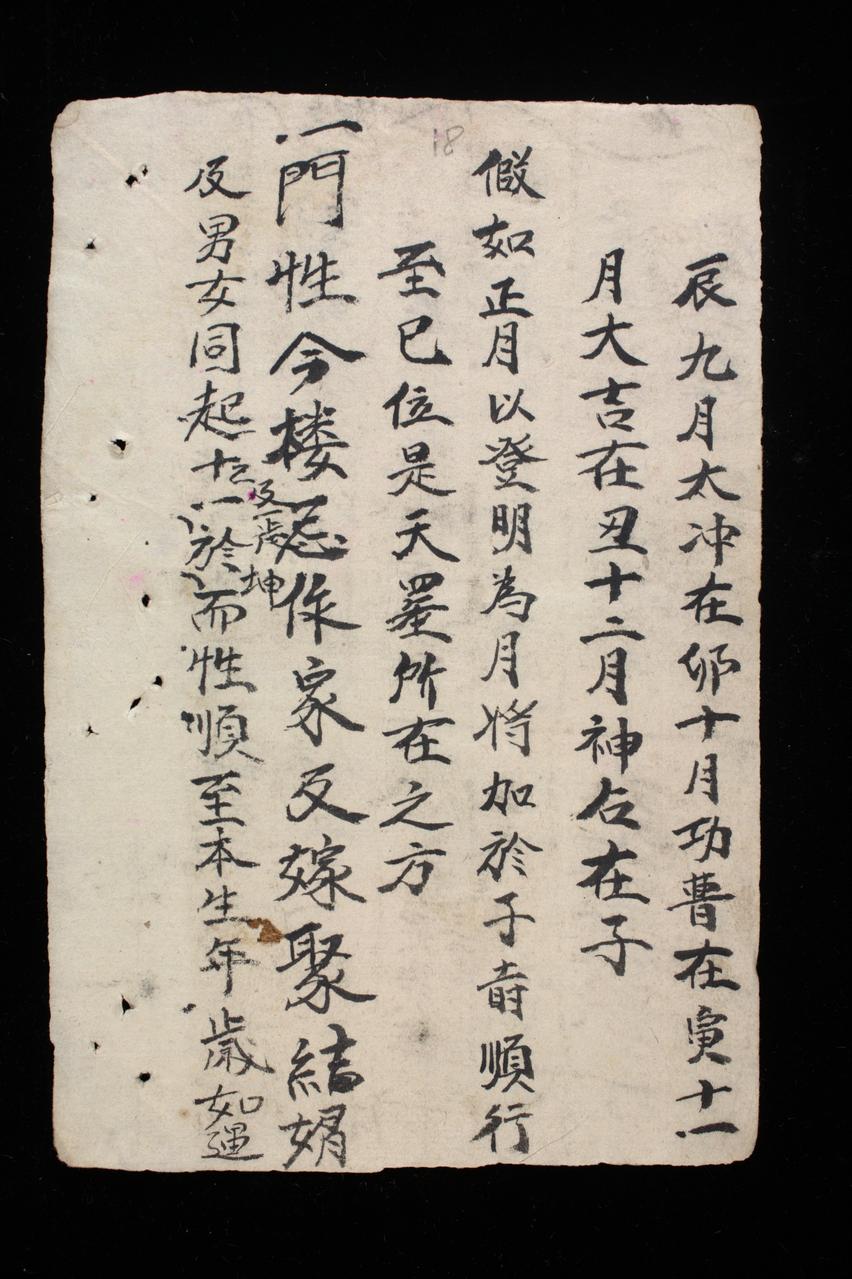 辰九月太冲在卯十月功曹在寅十一
月大吉在丑十二月神后在子
假如正月以登明為月将加於子時順行
至巳位是天罡所在之方
一門性今楼忌作家及嫁聚結婿
及男女同起十之一於而性順至本生年歲如遇
及一歲坤
18